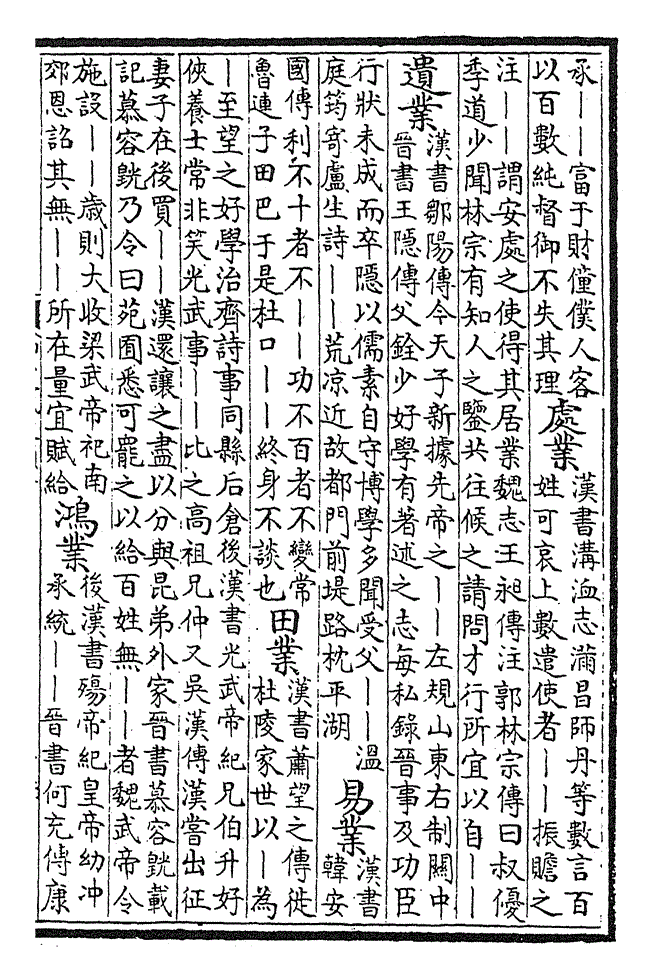 承丨丨富于財僮僕人客
以百數純督御不失其理
處業
漢書溝洫志滿昌師丹等數言百
姓可哀上數遣使者丨丨振贍之
注丨丨謂安處之使得其居業魏志王昶傳注郭林宗傳曰叔優
季道少聞林宗有知人之鑒共往候之請問才行所宜以自丨丨
遺業
漢書鄒陽傳今天子新據先帝之丨丨左規山東右制關中
晉書王隱傳父銓少好學有著述之志每私錄晉事及功臣
行狀未成而卒隱以儒素自守博學多聞受父丨丨溫
庭筠寄盧生詩丨丨荒凉近故都門前堤路枕平湖
易業
漢書
韓安
國傳利不十者不丨丨功不百者不變常
魯連子田巴于是杜口丨丨終身不談也
田業
漢書蕭望之傳徙
杜陵家世以丨為
丨至望之好學治齊詩事同縣后倉後漢書光武帝紀兄伯升好
俠養士常非笑光武事丨丨比之高祖兄仲又吳漢傳漢嘗出征
妻子在後買丨丨漢還讓之盡以分與昆弟外家晉書慕容皝載
記慕容皝乃令曰苑囿悉可罷之以給百姓無丨丨者魏武帝令
施設丨丨歲則大收梁武帝祀南
郊恩詔其無丨丨所在量宜賦給
鴻業
後漢書殤帝紀皇帝幼冲
承統丨丨晉書何充傳康